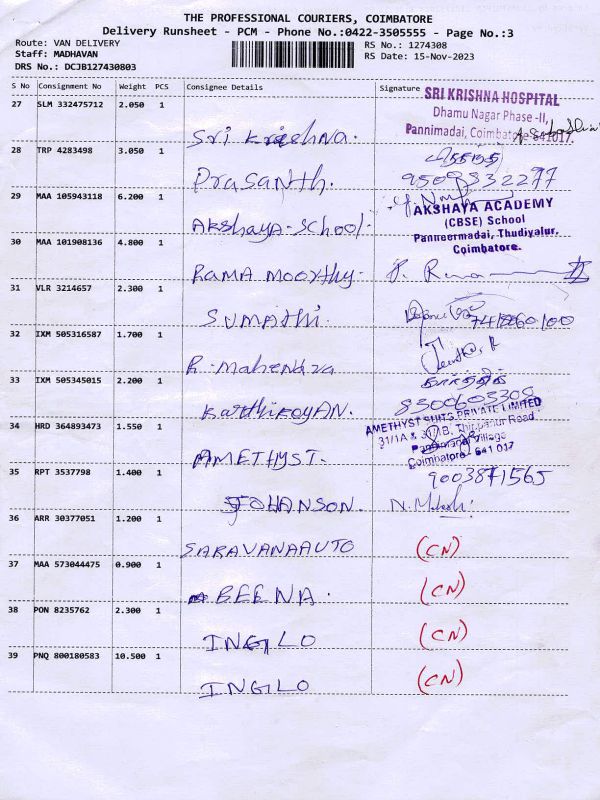 THE PROFESSIONAL COURIERS, COIMBATORE
Delivery Runsheet - PCM - Phone No.:0422-3505555 - Page No.:3
Route: VAN DELIVERY
Staff: MADHAVAN
DRS No.: DCJB127430803
RS No.: 1274308
RS Date: 15-Nov-2023
S No Consignment No Weight PCS Consignee Details Signature
27 SLM 332475712 2.050 1 Sri Krishna.
SRI KRISHNA HOSPITAL
Dhamu Nagar Phase-II,
Pannimadai, Coimbatore 641017.
28 TRP 4283498 3.050 1 Prasanth.
29 MAA 105943118 6.200 1 Akshaya-School.
AKSHAYA ACADEMY
(CBSE) School
Panneermadai, Thudiyalur,
Coimbatore.
30 MAA 101908136 4.800 1 Rama Moorthy.
31 VLR 3214657 2.300 1 Sumathi.
32 IXM 505316587 1.700 1 R. Mahendira
33 IXM 505345015 2.200 1 Karthikeyan.
கார்த்திக்
8300603308
34 HRD 364893473 1.550 1 AMETHYST.
AMETHYST SUITS PRIVATE LIMITED
31/1A & 31/1B, Thippanur Road
Village
Coimbatore - 641 017
35 RPT 3537798 1.400 1 JOHANSON.
9003871565
36 ARR 30377051 1.200 1 SARAVANAAUTO (CN)
37 MAA 573044475 0.900 1 BEENA. (CN)
38 PON 8235762 2.300 1 INGLO (CN)
39 PNQ 800180583 10.500 1 INGLO (CN)